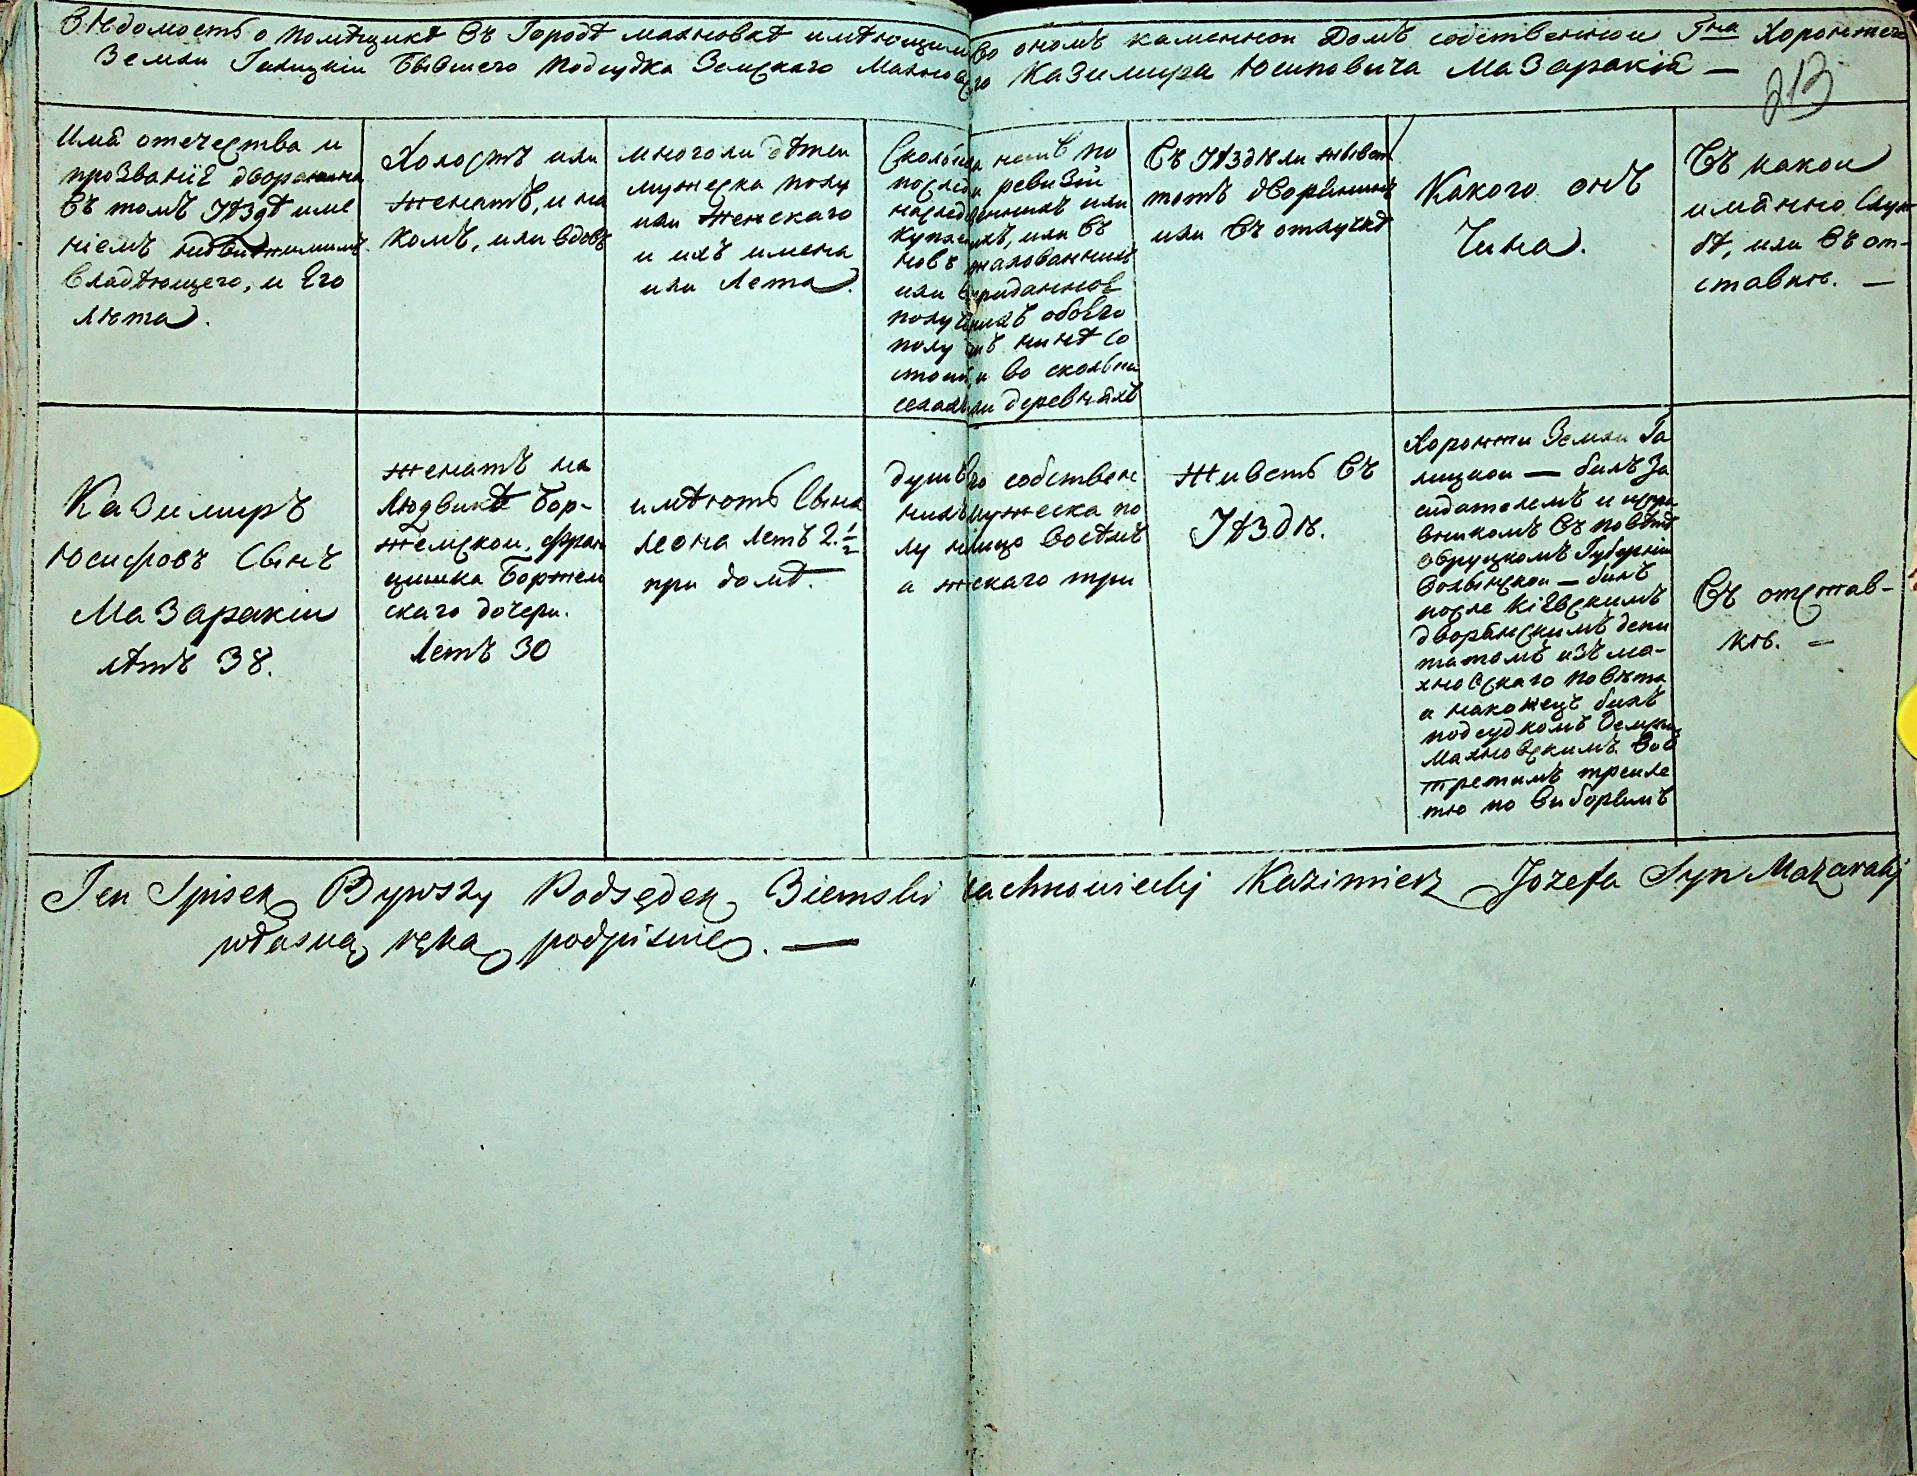 Вѣдомость о помѣщикѣ Въ Городѣ махновкѣ имѣющимъ во ономъ каменнои Домъ собственнои Гна Хоронжего
Земли Галицкіи Бывшего Подсудка Земскаго Махновецкго Казимира Юсиповича Мазаракія —
213
Имя отечества и
прозваніе дворянина
въ томъ уѣздѣ име
ніемъ недвижимимъ
владѣющего, и Его
лѣта.
Холостъ или
женатъ, и на
комъ, или вдовъ
многоли дѣтеи
мужеска полу
или женскаго
и ихъ имена
или лета.
Сколько за нимъ по
последнеи ревизіи
наследственнихъ или
купленихъ, или въ
новъ жалованнихъ
или въ приданное
полученихъ обоего
полу душъ нинѣ со
стоитъ и во сколкихъ
селахъ или деревняхъ
Въ уѣздѣ ли живет
тотъ дворянинъ
или въ отлучкѣ
Какого онъ
Чина.
Въ какои
имянно служ
бѣ, или въ от-
ставкѣ. —
Казимиръ
Юсифовъ Сынъ
Мазаракіи
лѣтъ 38.
женатъ на
Людвикѣ Бор-
жемскои, фран
цишка Боржем
скаго дочери.
летъ 30
имѣютъ Сына
леона летъ 2. 1/2
при домѣ.
душъ его собствен
нихъ мужеска по
лу налицо восѣмъ
а женскаго три
живетъ въ
уѣздѣ.
Хоронжи Земли Га
лицкои — билъ За
сидателемъ и испра
вникомъ въ повѣтѣ
овруцкомъ Губерніи
волынскои — билъ
после кіевскимъ
дворянскимъ депи
татомъ изъ ма-
хновскаго повѣта
а наконецъ билъ
подсудкомъ Земским
Махновскимъ во
третимъ треиле
тю по виборамъ
Въ отстав-
кѣ. —
Ten Spisek Bywszy Podsędek Ziemski Machnowiecki Kazimierz Jozefa Syn Mazaraki
własną ręką podpisuię. —